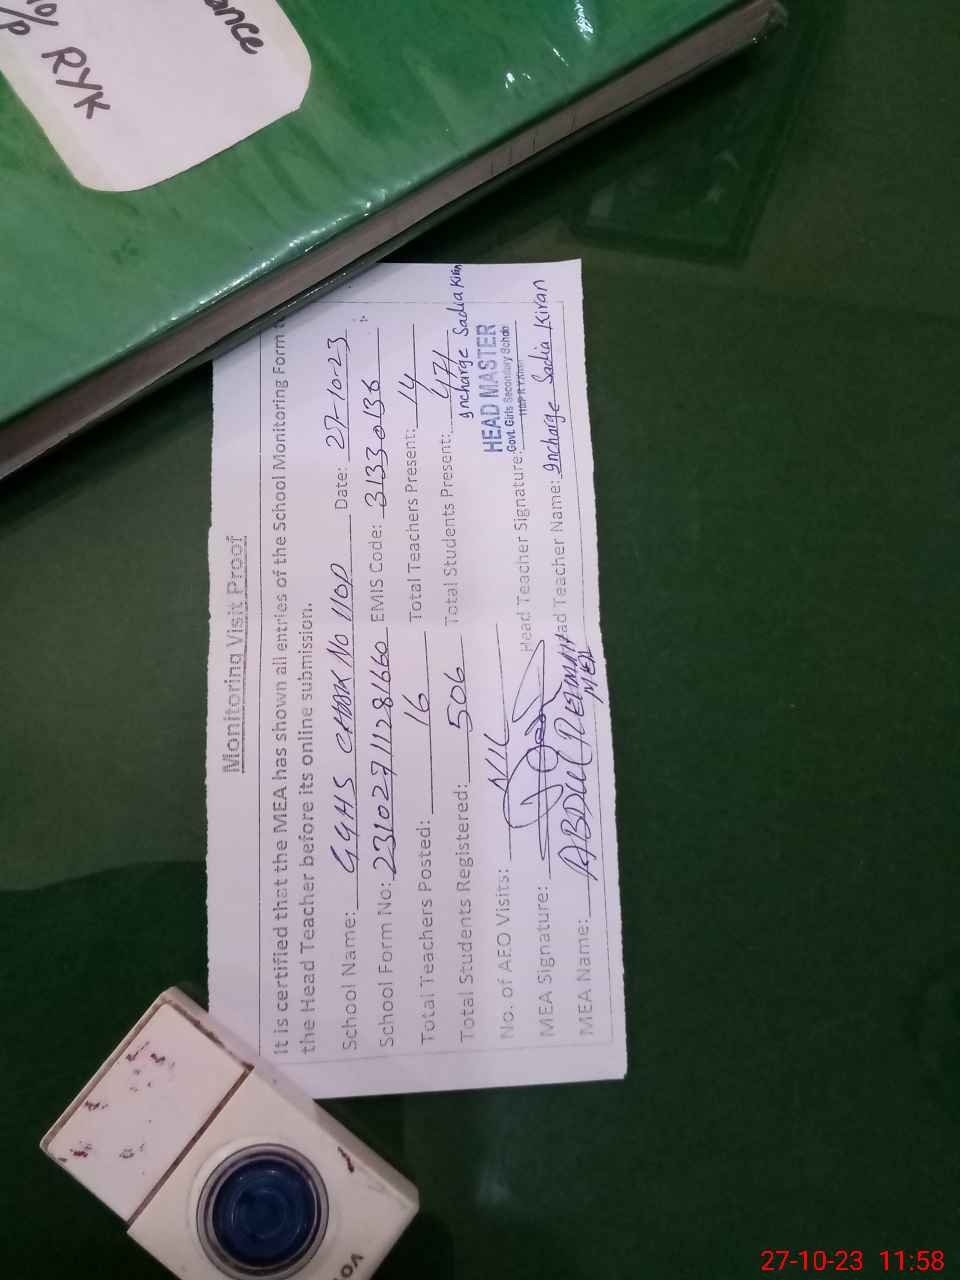 ance
10/
P RYK
Monitoring Visit Proof
It is certified that the MEA has shown all entries of the School Monitoring Form t
the Head Teacher before its online submission.
School Name: GGHS CHAK NO 110P Date: 27-10-23
School Form No: 231027111281660 EMIS Code: 31330136
Total Teachers Posted: 16 Total Teachers Present: 14
Total Students Registered: 506 Total Students Present: 471
Incharge Sadia Kiran
HEAD MASTER
Govt. Girls Secondary School
110P R.Y.Khan
No. of AEO Visits: NIL
MEA Signature: Head Teacher Signature:
MEA Name: ABDUL REHMAN ad Teacher Name: Incharge Sadia Kiran
MEA
VO
27-10-23 11:58